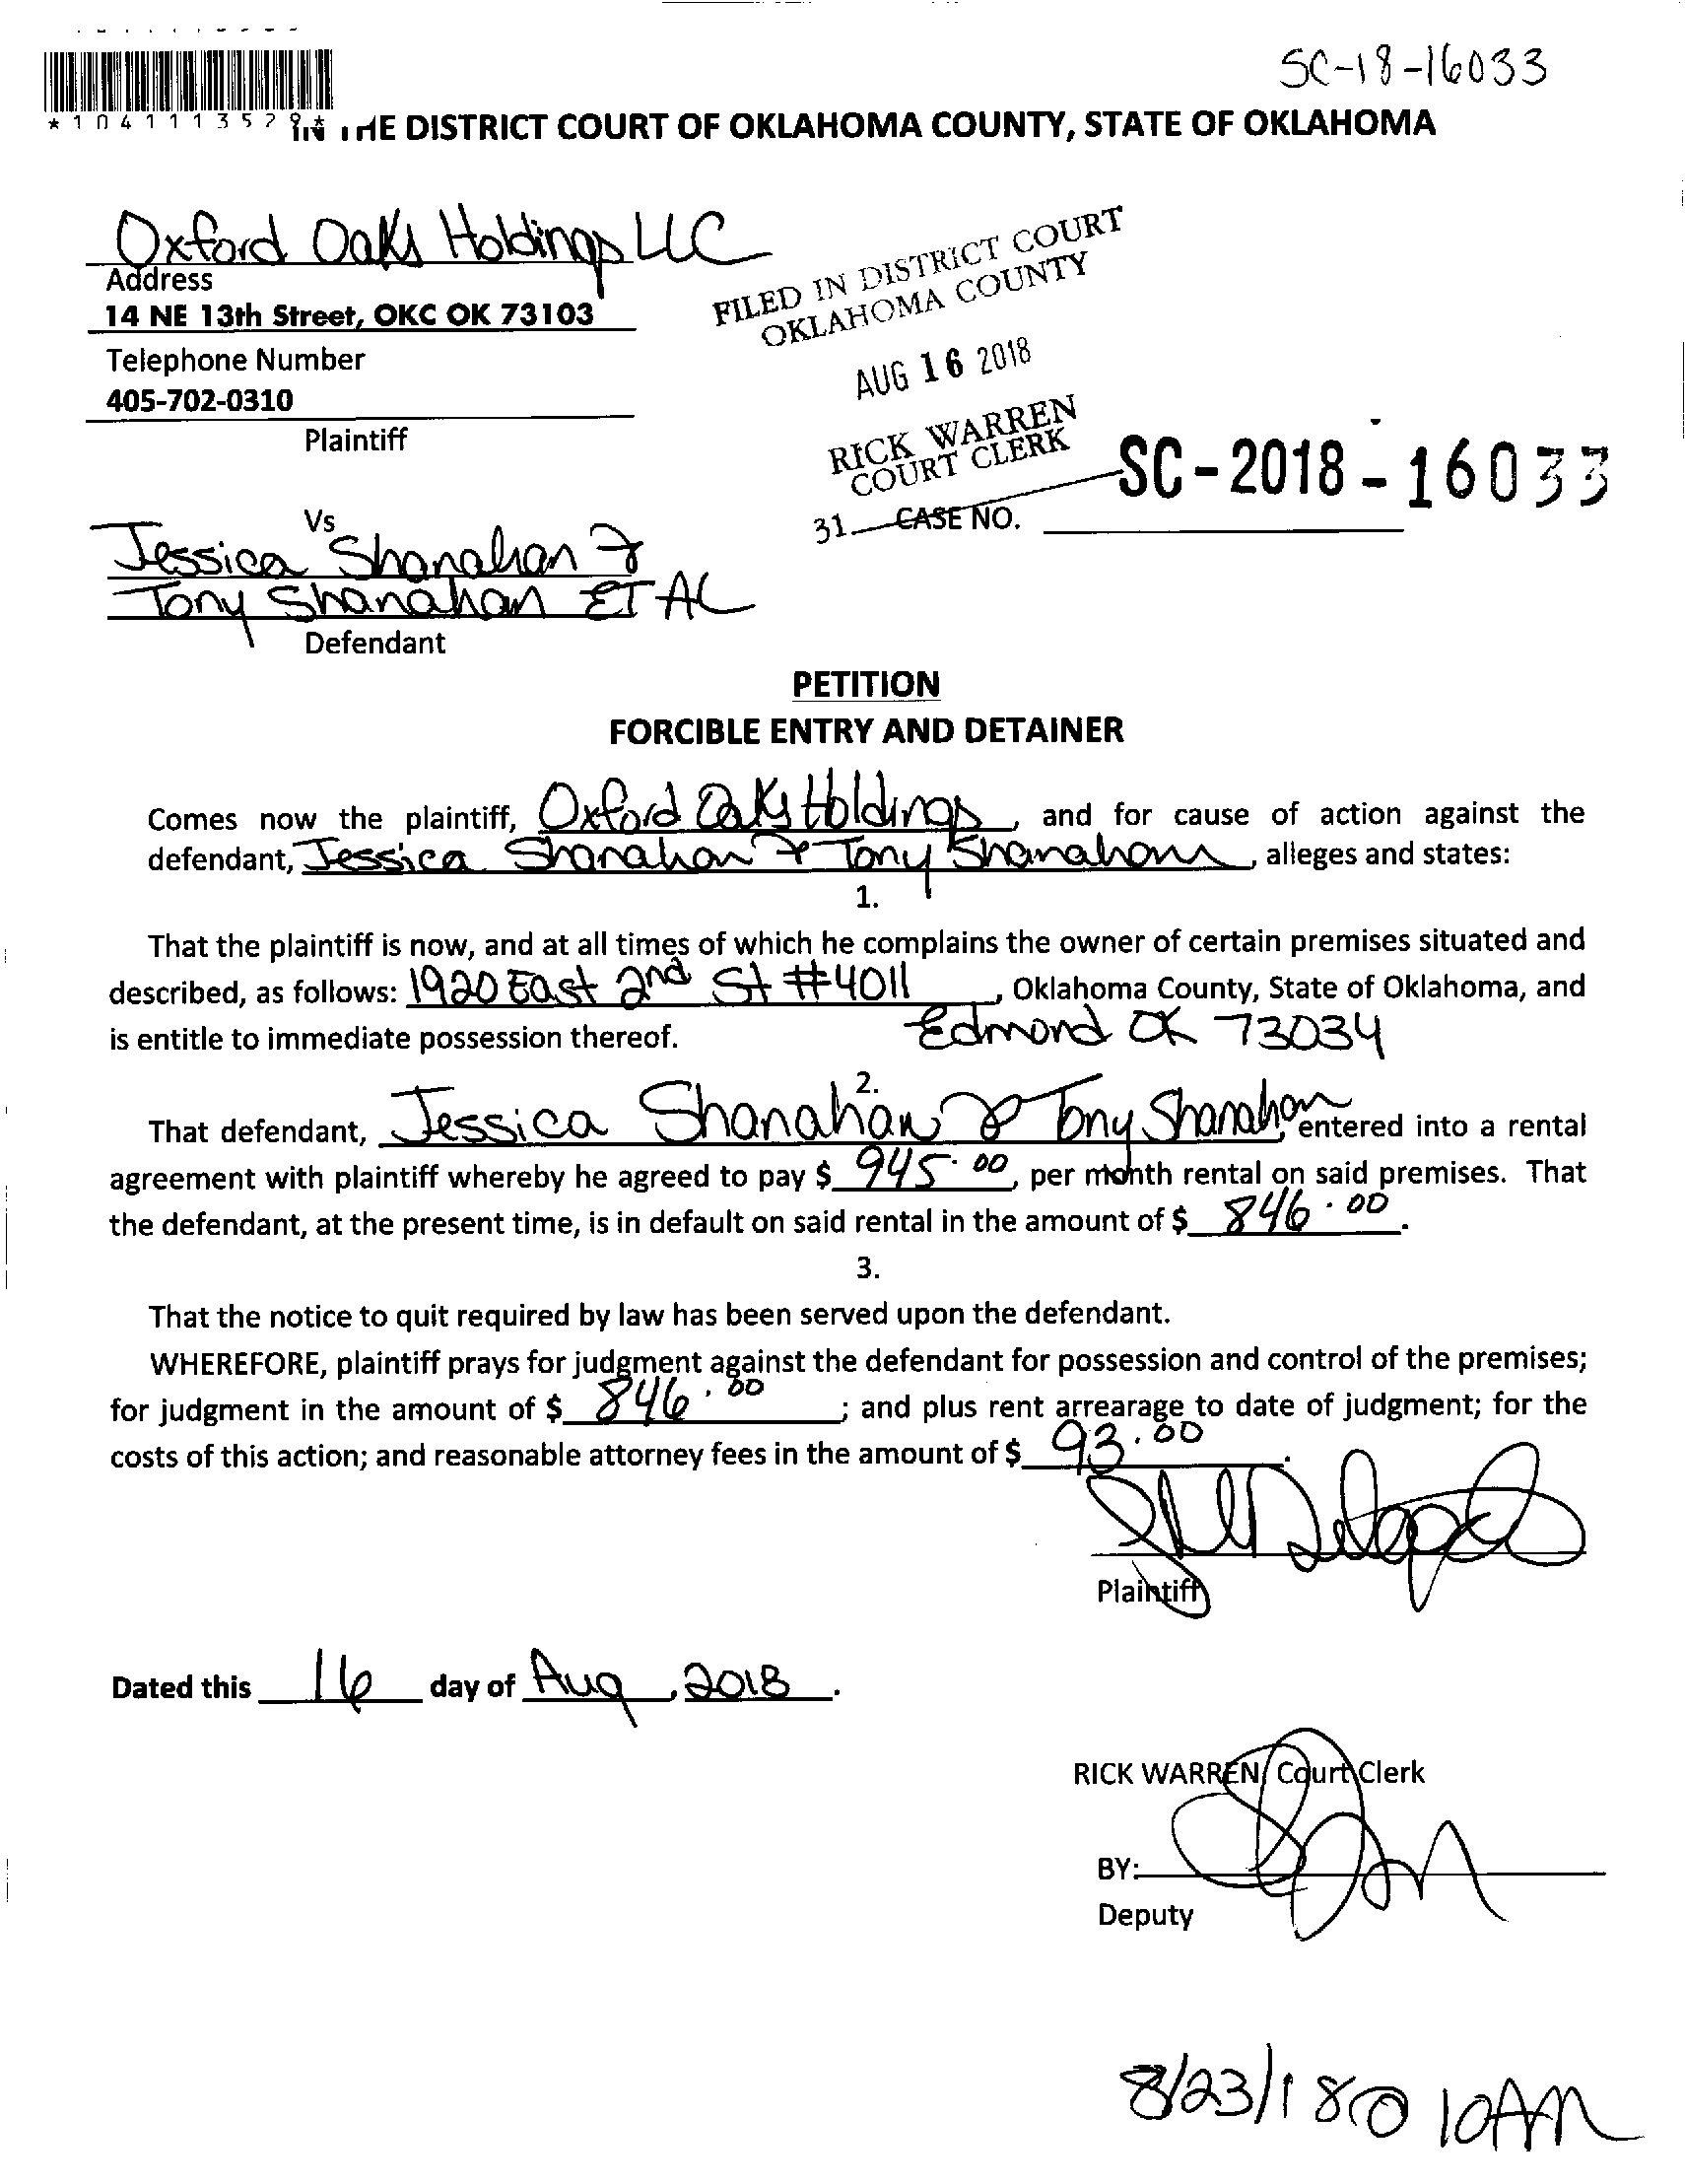 SC-18-16033
IN THE DISTRICT COURT OF OKLAHOMA COUNTY, STATE OF OKLAHOMA
Oxford Oaks Holdings LLC
Address
14 NE 13th Street, OKC OK 73103
Telephone Number
405-702-0310
Plaintiff
FILED IN DISTRICT COURT
OKLAHOMA COUNTY
AUG 16 2018
RICK WARREN
COURT CLERK
31 CASE NO. SC-2018-16033
Vs
Jessica Shanahan &
Tony Shanahan ET AL
Defendant
PETITION
FORCIBLE ENTRY AND DETAINER
Comes now the plaintiff, Oxford Oaks Holdings, and for cause of action against the
defendant, Jessica Shanahan & Tony Shanahan, alleges and states:
1.
That the plaintiff is now, and at all times of which he complains the owner of certain premises situated and
described, as follows: 1920 East 2nd St #4011, Oklahoma County, State of Oklahoma, and
is entitle to immediate possession thereof. Edmond OK 73034
2.
That defendant, Jessica Shanahan & Tony Shanahan, entered into a rental
agreement with plaintiff whereby he agreed to pay $ 945.00, per month rental on said premises. That
the defendant, at the present time, is in default on said rental in the amount of $ 846.00.
3.
That the notice to quit required by law has been served upon the defendant.
WHEREFORE, plaintiff prays for judgment against the defendant for possession and control of the premises;
for judgment in the amount of $ 846.00; and plus rent arrearage to date of judgment; for the
costs of this action; and reasonable attorney fees in the amount of $ 93.00.
Plaintiff
Dated this 16 day of Aug, 2018.
RICK WARREN, Court Clerk
BY:
Deputy
8/23/18 @ 10AM